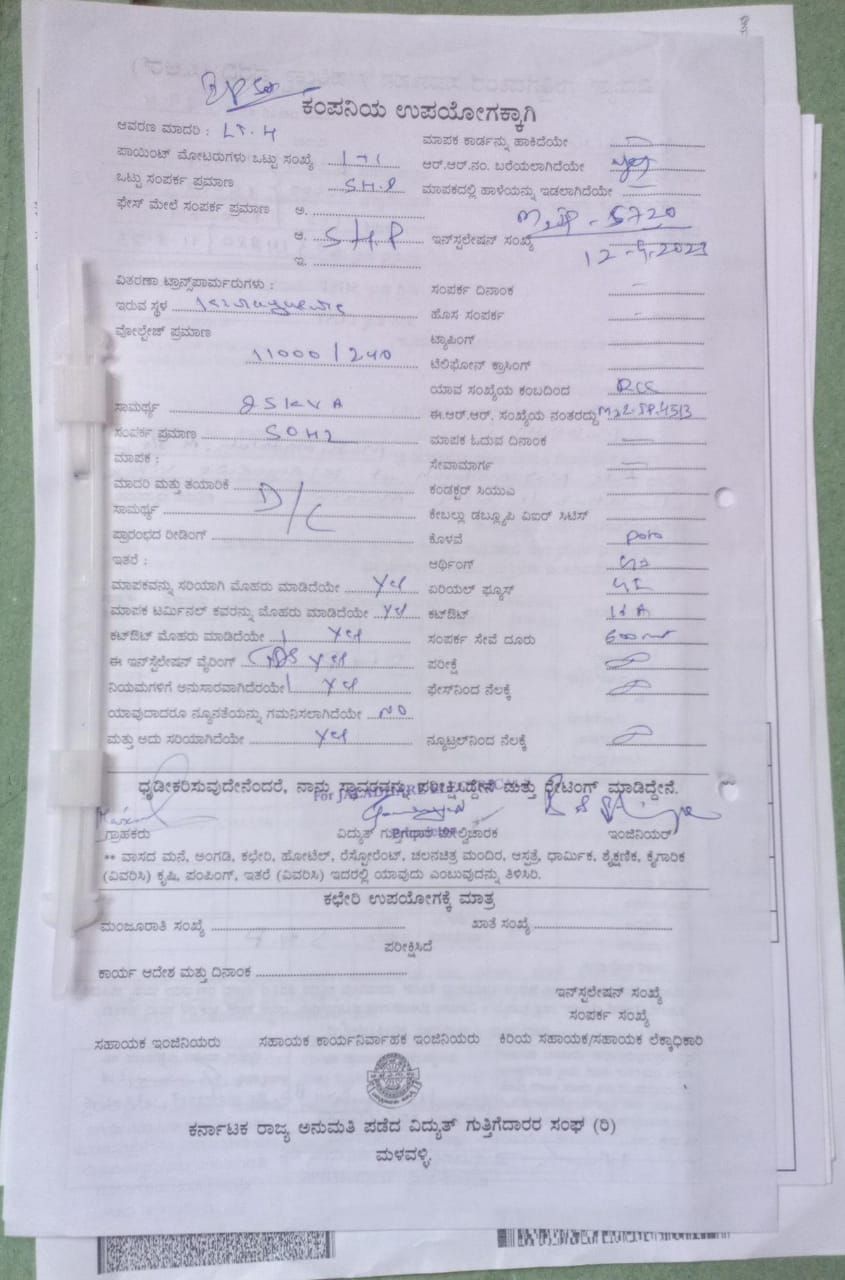 ಕಂಪನಿಯ ಉಪಯೋಗಕ್ಕಾಗಿ
ಆವರಣ ಮಾದರಿ : LT. 4
ಮಾಪಕ ಕಾರ್ಡನ್ನು ಹಾಕಿದೆಯೇ
ಪಾಯಿಂಟ್ ಮೋಟರುಗಳು ಒಟ್ಟು ಸಂಖ್ಯೆ
ಆರ್.ಆರ್.ನಂ. ಬರೆಯಲಾಗಿದೆಯೇ yes
ಒಟ್ಟು ಸಂಪರ್ಕ ಪ್ರಮಾಣ 5H.P
ಮಾಪಕದಲ್ಲಿ ಹಾಳೆಯನ್ನು ಇಡಲಾಗಿದೆಯೇ
ಫೇಸ್ ಮೇಲೆ ಸಂಪರ್ಕ ಪ್ರಮಾಣ ಅ.
ಆ. 5 H.P
ಇನ್‌ಸ್ಟಲೇಷನ್ ಸಂಖ್ಯೆ 5720
ಇ.
ವಿತರಣಾ ಟ್ರಾನ್ಸ್‌ಪಾರ್ಮರುಗಳು :
ಸಂಪರ್ಕ ದಿನಾಂಕ
ಇರುವ ಸ್ಥಳ
ಹೊಸ ಸಂಪರ್ಕ
ವೋಲ್ಟೇಜ್ ಪ್ರಮಾಣ
ಟ್ಯಾಪಿಂಗ್
11000 / 240
ಟೆಲಿಫೋನ್ ಕ್ರಾಸಿಂಗ್
ಯಾವ ಸಂಖ್ಯೆಯ ಕಂಬದಿಂದ RCC
ಸಾಮರ್ಥ್ಯ 25 KVA
ಈ.ಆರ್.ಆರ್. ಸಂಖ್ಯೆಯ ನಂತರದ್ದು
ಸಂಪರ್ಕ ಪ್ರಮಾಣ 50HZ
ಮಾಪಕ ಓದುವ ದಿನಾಂಕ
ಮಾಪಕ :
ಸೇವಾಮಾರ್ಗ
ಮಾದರಿ ಮತ್ತು ತಯಾರಿಕೆ D/C
ಕಂಡಕ್ಟರ್ ಸಿಯುಎ
ಸಾಮರ್ಥ್ಯ
ಕೇಬಲ್ಲು ಡಬ್ಲ್ಯೂಪಿ ವಿಐರ್ ಸಿಟಿಸ್
ಪ್ರಾರಂಭದ ರೀಡಿಂಗ್
ಕೊಳವೆ
ಇತರೆ :
ಆರ್ಥಿಂಗ್
ಮಾಪಕವನ್ನು ಸರಿಯಾಗಿ ಮೊಹರು ಮಾಡಿದೆಯೇ Yes
ಏರಿಯಲ್ ಫ್ಯೂಸ್
ಮಾಪಕ ಟರ್ಮಿನಲ್ ಕವರನ್ನು ಮೊಹರು ಮಾಡಿದೆಯೇ Yes
ಕಟ್‌ಔಟ್
ಕಟ್‌ಔಟ್ ಮೊಹರು ಮಾಡಿದೆಯೇ Yes
ಸಂಪರ್ಕ ಸೇವೆ ದೂರು
ಈ ಇನ್‌ಸ್ಟಲೇಷನ್ ವೈರಿಂಗ್ Yes
ಪರೀಕ್ಷೆ
ನಿಯಮಗಳಿಗೆ ಅನುಸಾರವಾಗಿದೆರಯೇ Yes
ಫೇಸ್‌ನಿಂದ ನೆಲಕ್ಕೆ
ಯಾವುದಾದರೂ ನ್ಯೂನತೆಯನ್ನು ಗಮನಿಸಲಾಗಿದೆಯೇ NO
ಮತ್ತು ಅದು ಸರಿಯಾಗಿದೆಯೇ Yes
ನ್ಯೂಟ್ರಲ್‌ನಿಂದ ನೆಲಕ್ಕೆ
ಧೃಡೀಕರಿಸುವುದೇನೆಂದರೆ, ನಾನು ಸ್ಥಾವರವನ್ನು ಪರೀಕ್ಷಿಸಿದ್ದೇನೆ ಮತ್ತು ರೇಟಿಂಗ್ ಮಾಡಿದ್ದೇನೆ.
ಗ್ರಾಹಕರು
ವಿದ್ಯುತ್ ಗುತ್ತಿಗೆದಾರ ಮೇಲ್ವಿಚಾರಕ
ಇಂಜಿನಿಯರ್
** ವಾಸದ ಮನೆ, ಅಂಗಡಿ, ಕಛೇರಿ, ಹೋಟೆಲ್, ರೆಸ್ಟೋರೆಂಟ್, ಚಲನಚಿತ್ರ ಮಂದಿರ, ಆಸ್ಪತ್ರೆ, ಧಾರ್ಮಿಕ, ಶೈಕ್ಷಣಿಕ, ಕೈಗಾರಿಕ
(ವಿವರಿಸಿ) ಕೃಷಿ, ಪಂಪಿಂಗ್, ಇತರೆ (ವಿವರಿಸಿ) ಇದರಲ್ಲಿ ಯಾವುದು ಎಂಬುವುದನ್ನು ತಿಳಿಸಿರಿ.
ಕಛೇರಿ ಉಪಯೋಗಕ್ಕೆ ಮಾತ್ರ
ಮಂಜೂರಾತಿ ಸಂಖ್ಯೆ
ಖಾತೆ ಸಂಖ್ಯೆ
ಪರೀಕ್ಷಿಸಿದೆ
ಕಾರ್ಯ ಆದೇಶ ಮತ್ತು ದಿನಾಂಕ
ಇನ್‌ಸ್ಟಲೇಷನ್ ಸಂಖ್ಯೆ
ಸಂಪರ್ಕ ಸಂಖ್ಯೆ
ಸಹಾಯಕ ಇಂಜಿನಿಯರು
ಸಹಾಯಕ ಕಾರ್ಯನಿರ್ವಾಹಕ ಇಂಜಿನಿಯರು
ಕಿರಿಯ ಸಹಾಯಕ/ಸಹಾಯಕ ಲೆಕ್ಕಾಧಿಕಾರಿ
ಕರ್ನಾಟಕ ರಾಜ್ಯ ಅನುಮತಿ ಪಡೆದ ವಿದ್ಯುತ್ ಗುತ್ತಿಗೆದಾರರ ಸಂಘ (ರಿ)
ಮಳವಳ್ಳಿ.